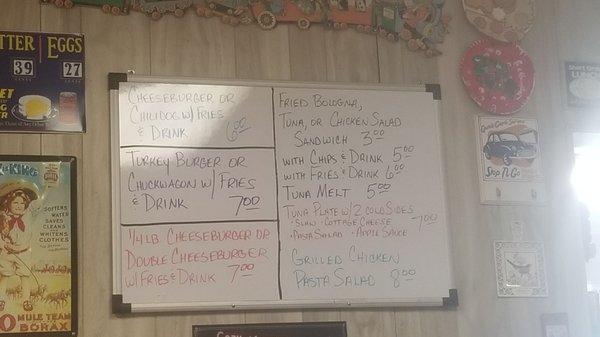 TTER EGGS
39 27
CHEESEBURGER OR
CHILIDOG W/ FRIES
& DRINK 6.00
TURKEY BURGER OR
CHUCKWAGON W/ FRIES
& DRINK 7.00
1/4 LB CHEESEBURGER OR
DOUBLE CHEESEBURGER
W/ FRIES & DRINK 7.00
FRIED BOLOGNA,
TUNA, OR CHICKEN SALAD
SANDWICH 3.00
WITH CHIPS & DRINK 5.00
WITH FRIES & DRINK 6.00
TUNA MELT 5.00
TUNA PLATE W/ 2 COLD SIDES
-SLAW -COTTAGE CHEESE -7.00
-PASTA SALAD -APPLE SAUCE
GRILLED CHICKEN
PASTA SALAD 8.00
SOFTENS
WATER
CLEANS
WHITENS
CLOTHES
MULE TEAM
BORAX
STOP N GO